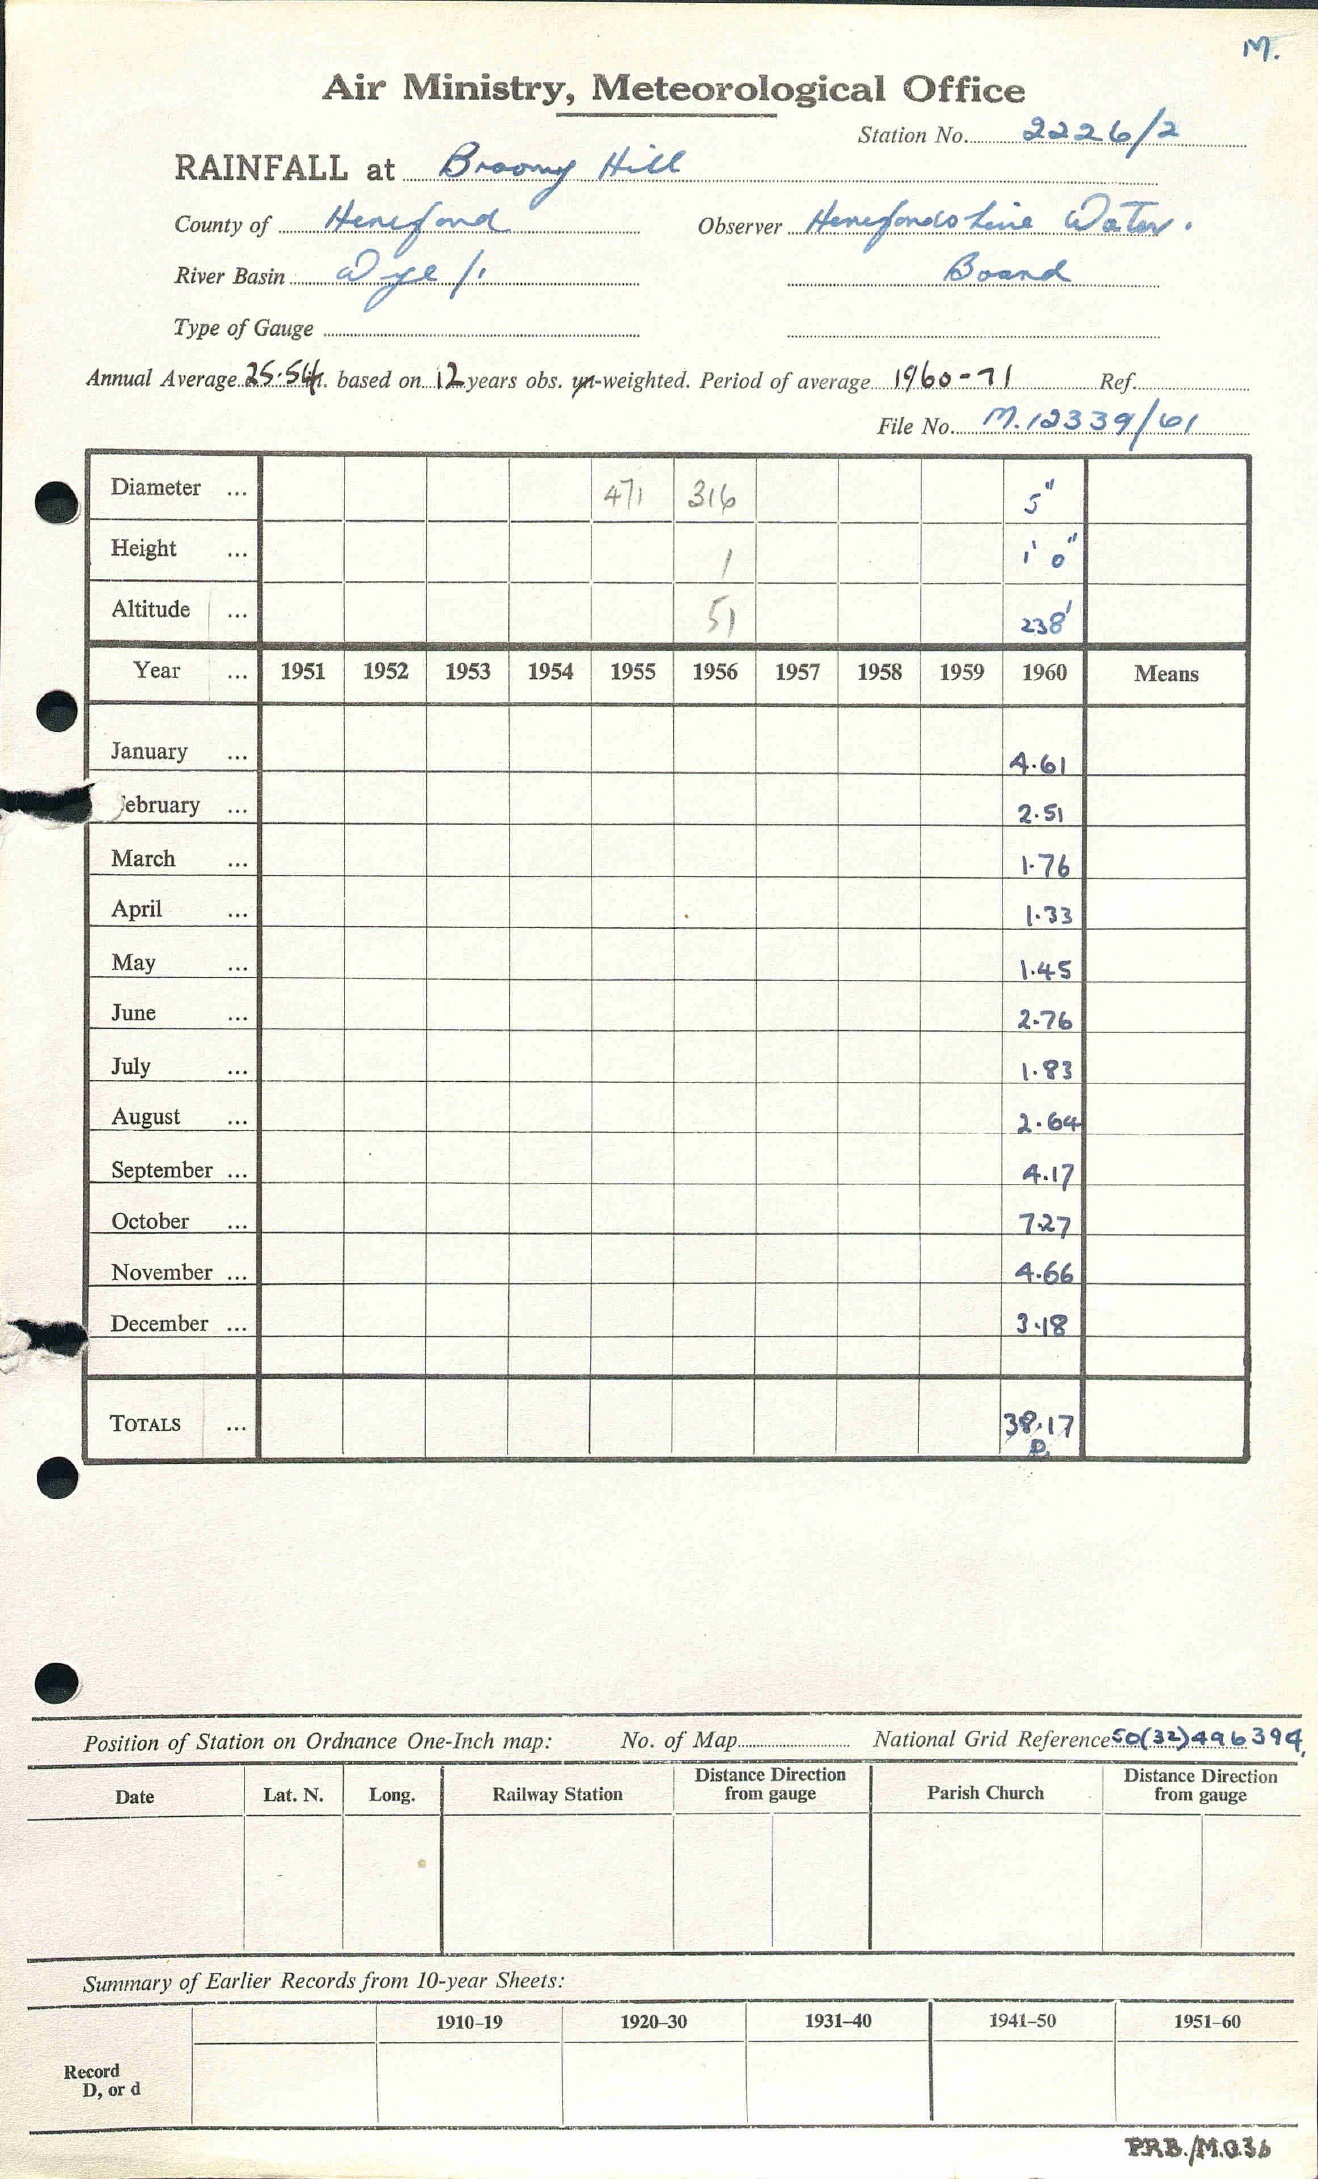 M.
Air Ministry, Meteorological Office
Station No. 2226/2
RAINFALL at Broomy Hill
County of Hereford Observer Herefordshire Water
River Basin Wye /1 Board
Type of Gauge
Annual Average 25.54 in. based on 12 years obs. un-weighted. Period of average 1960-71 Ref.
File No. M.12339/61
Diameter ... 471 316 5"
Height ... 1 1' 0"
Altitude ... 51 238'
Year ... 1951 1952 1953 1954 1955 1956 1957 1958 1959 1960 Means
January ... 4.61
February ... 2.51
March ... 1.76
April ... 1.33
May ... 1.45
June ... 2.76
July ... 1.83
August ... 2.64
September ... 4.17
October ... 7.27
November ... 4.66
December ... 3.18
TOTALS ... 38.17
D.
Position of Station on Ordnance One-Inch map: No. of Map National Grid Reference SO(32)496394
Date Lat. N. Long. Railway Station Distance Direction from gauge Parish Church Distance Direction from gauge
Summary of Earlier Records from 10-year Sheets:
1910–19 1920–30 1931–40 1941–50 1951–60
Record
D, or d
PRB./M.O.36